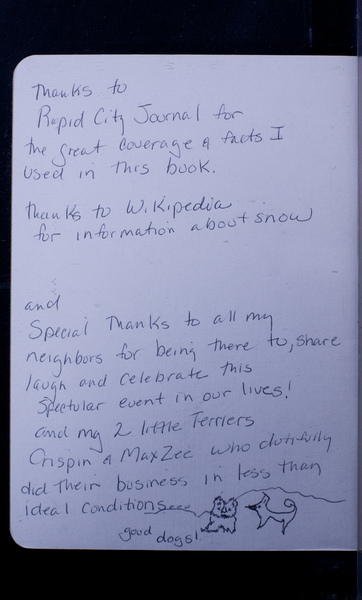 Thanks to
Rapid City Journal for
the great coverage & facts I
used in this book.
Thanks to Wikipedia
for information about snow
and
Special Thanks to all my
neighbors for being there to, share
laugh and celebrate this
Spectular event in our lives!
and my 2 little Terriers
Crispin & MaxZee who dutifully
did their business in less than
ideal conditions...
good
dogs!